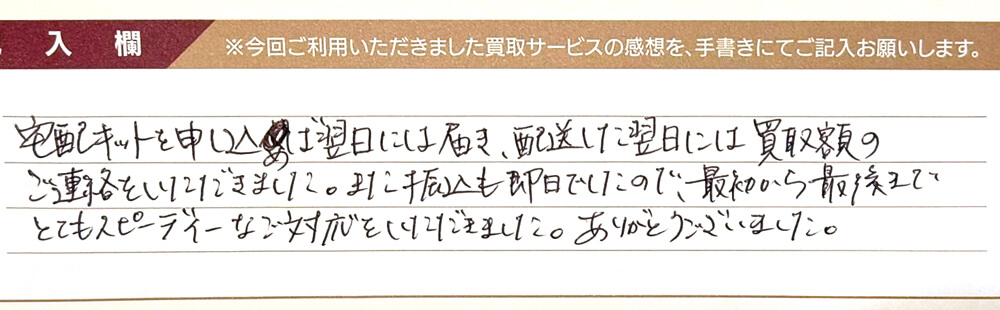 入欄
※今回ご利用いただきました買取サービスの感想を、手書きにてご記入お願いします。
宅配キットを申し込めば翌日には届き、配送した翌日には買取額の
ご連絡をいただきました。また振込も即日でしたので、最初から最後まで
とてもスピーディーなご対応をいただきました。ありがとうございました。